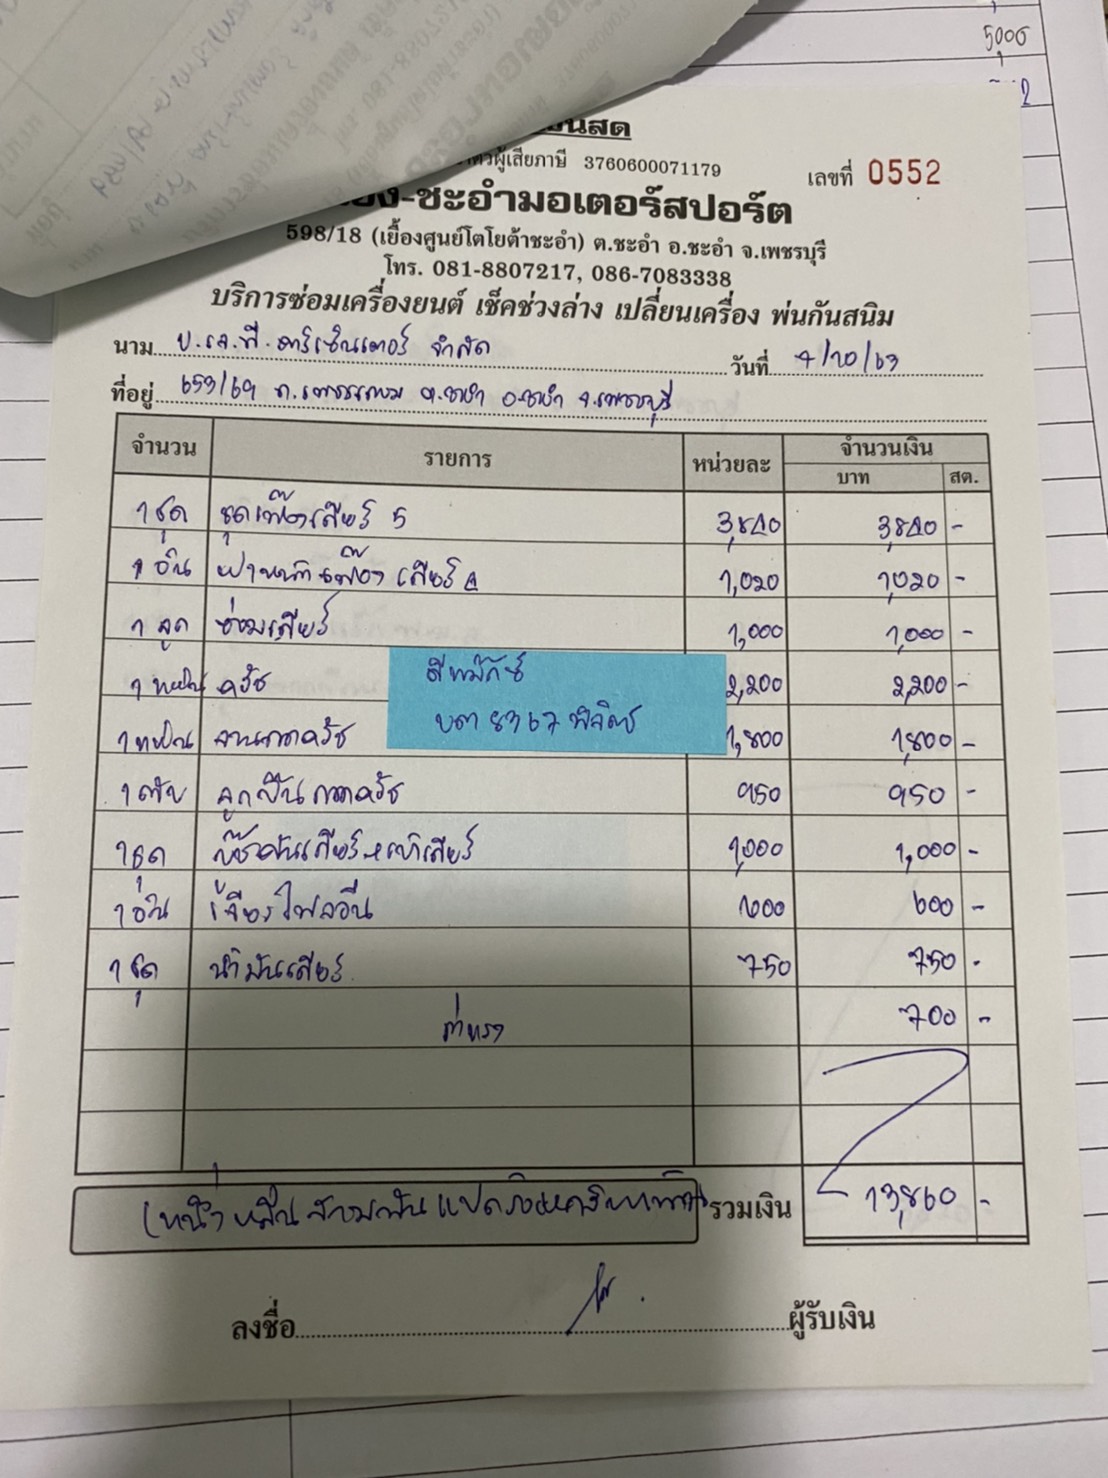 5,006
นสด
ตัวผู้เสียภาษี 3760600071179
เลขที่ 0552
-ชะอำมอเตอร์สปอร์ต
598/18 (เยื้องศูนย์โตโยต้าชะอำ) ต.ชะอำ อ.ชะอำ จ.เพชรบุรี
โทร. 081-8807217, 086-7083338
บริการซ่อมเครื่องยนต์ เช็คช่วงล่าง เปลี่ยนเครื่อง พ่นกันสนิม
นาม บ.เจ.พี.คาร์เซ็นเตอร์ จำกัด วันที่ 7/10/63
ที่อยู่ 653/69 ถ.เพชรเกษม ต.ชะอำ อ.ชะอำ จ.เพชรบุรี
จำนวน รายการ หน่วยละ จำนวนเงิน
บาท สต.
1 ชุด ชุดเฟืองเกียร์ 5 3,840 3,840 -
1 อัน ฝาหน้าเฟืองเกียร์ 1,020 1,020 -
1 ลูก ซ่อมเกียร์ 1,000 1,000 -
1 แผ่น ครัช 2,200 2,200 -
1 แผ่น จานกดครัช 1,800 1,800 -
1 ตับ ลูกปืนกดครัช 950 950 -
1 ชุด บู๊ชคันเกียร์+เบ้าเกียร์ 1,000 1,000 -
1 อัน เจียรไฟลวีน 600 600 -
1 ชุด น้ำมันเกียร์ 750 750 -
ค่าแรง 700 -
บตา 8367 พิจิตร
(หนึ่งหมื่นสามพันแปดร้อยหกสิบบาทถ้วน) รวมเงิน 13,860 -
ลงชื่อ ผู้รับเงิน